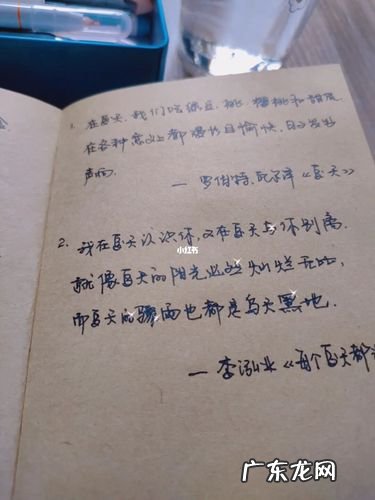 1. 在夏天,我们吃绿豆、桃、樱桃和甜瓜.
在各种意义上都漫长且愉快,日子发出
声响.
— 罗伯特.瓦尔泽《夏天》
2. 我在夏天认识你,又在夏天与你别离.
小红书
就像夏天的阳光总是灿烂无比,
而夏天的骤雨也都是乌天黑地.
— 李泓业《每个夏天都
广东龙网